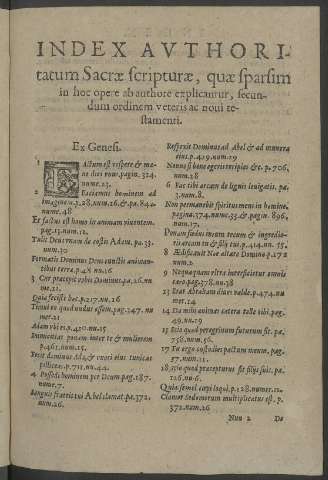 INDEX AVTHORI-
tatum Sacræ scripturæ, quæ sparsim
in hoc opere ab authore explicantur, secun-
dum ordinem veteris ac noui te-
stamenti.
Ex Genesi.
1 FActum est vespere & ma-
ne dies vnus. pagin. 324.
nume. 23.
2 Faciamus hominem ad
imaginem. 328. num. 26. & pa. 842.
nume. 48
Et factus est homo in animam viuentem.
pag. 13. num. 12.
Tulit Deus vnam de costis Adam. pa. 33.
num. 20
Formatis Dominus Deus cunctis animan-
tibus terræ. p. 48 nu. 16
3 Cur præcepit vobis Dominus. pa. 26. nu
me. 21.
Quia fecisti hoc. p. 217. nu. 26
Timui eo quod nudus essem. pag. 247. nu
mer. 21
Adam vbi es. p. 420. nu. 25
Inimicitias ponam inter te & mulierem
p. 461. num. 25.
Fecit dominus Adæ & vxori eius tunicas
pelliceas. p. 711. nu. 44.
4 Possedi hominem per Deum. pag. 187.
nume. 7.
Sanguis fratris tui Abel clamat. pa. 372.
num. 26.
Respexit Dominus ad Abel & ad munera
eius. p. 419. num. 29
Nonne si bene egeris recipies & c. p. 706.
num. 28
6 Fac tibi arcam de lignis leuigatis. pa.
3. num. 8.
Non permanebit spiritus meus in homine.
pagina. 174. nume. 33. & pagin. 896.
num. 17.
Ponam fœdus meum tecum & ingredie-
ris arcam tu & filij tui. p. 414. nu. 15.
8 Ædificauit Noe altare Domino p. 172
num. 2.
9 Nequaquam vltra interficietur omnis
caro. pag. 378. nu. 38
13 Erat Abraham diues valde. p. 474. nu
mer. 24
14 Da mihi animas cætera tolle tibi. pag.
49. nu. 29
15 Scito quod peregrinum futurum sit. pa.
758. num. 56.
17 Tu ergo custodies pactum meum. pag.
57. num. 21.
18 Scio quod præcepturus sit filijs suis. pa.
126. nu. 6.
Quia semel cœpi loqui. p. 128. numer. 12.
Clamor Sodomorum multiplicatus est. p.
372. num. 26
Nnn 2 De